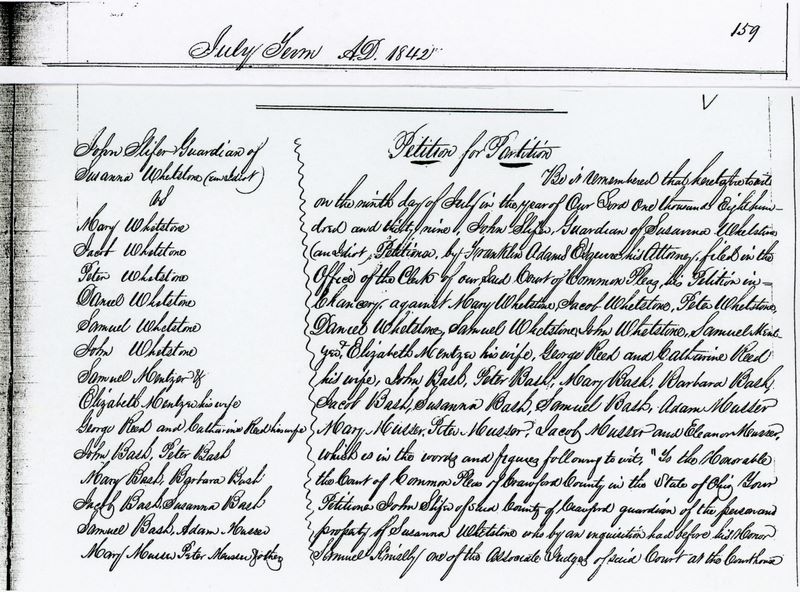 159
July Term A.D. 1842
John Slifer Guardian of
Susanna Whetstone (an Idiot)
vs
Mary Whetstone
Jacob Whetstone
Peter Whetstone
Daniel Whetstone
Samuel Whetstone
John Whetstone
Samuel Mentzer &
Elizabeth Mentzer his wife
George Reed and Catharine Reed his wife
John Bash, Peter Bash
Mary Bash, Barbara Bash
Jacob Bash, Susanna Bash
Samuel Bash, Adam Musser
Mary Musser Peter Musser & others
Petition for Partition
Be it remembered that heretofore to wit
on the ninth day of July in the year of Our Lord One thousand Eight hun-
dred and thirty nine, John Slifer, Guardian of Susanna Whetstone
(an Idiot, Petitioner, by Franklin Adams Esquire his Attorney, filed in the
Office of the Clerk of our said Court of Common Pleas, his Petition in=
Chancery, against Mary Whetstone, Jacob Whetstone, Peter Whetstone,
Daniel Whetstone, Samuel Whetstone, John Whetstone, Samuel Ment-
zer, Elizabeth Mentzer his wife, George Reed and Catharine Reed
his wife, John Bash, Peter Bash, Mary Bash, Barbara Bash
Jacob Bash, Susanna Bash, Samuel Bash, Adam Musser
Mary Musser, Peter Musser, Jacob Musser and Eleanor Musser,
which is in the words and figures following to wit, "To the Honorable
the Court of Common Pleas of Crawford County in the State of Ohio, Your
Petitioner John Slifer of said County of Crawford guardian of the person and
property of Susanna Whetstone who by an inquisition had before his Honor
Samuel Knisely one of the Associate Judges of said Court at the Courthouse